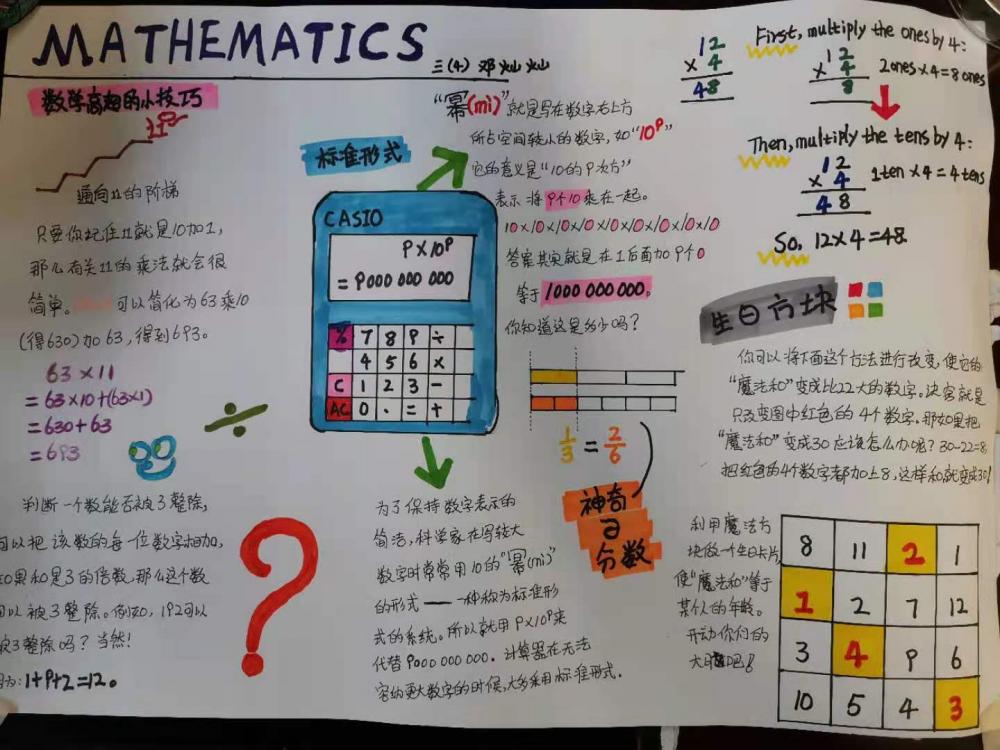 MATHEMATICS
三(4) 邓灿灿
数学高超的小技巧
通向11的阶梯
只要你记住11就是10加1,
那么有关11的乘法就会很
简单。 可以简化为63乘10
(得630)加63,得到693。
63×11
=63×10+(63×1)
=630+63
=693
÷
判断一个数能否被3整除,
可以把该数的每一位数字相加,
如果和是3的倍数,那么这个数
可以被3整除。例如,192可以
被3整除吗?当然!
因为:1+9+2=12。
?
标准形式
CASIO
9×10⁹
=9000 000 000
% 7 8 9 ÷
4 5 6 ×
C 1 2 3 -
AC 0 · = +
为了保持数字表示的
简洁,科学家在写较大
数字时常常用10的“幂(mì)”
的形式——一种称为标准形
式的系统。所以就用9×10⁹来
代替9000 000 000.计算器在无法
容纳更大数字的时候,大多采用标准形式.
“幂(mì)”就是写在数字右上方
所占空间较小的数字,如“10⁹”
它的意义是“10的9次方”
表示将9个10乘在一起。
10×10×10×10×10×10×10×10×10
答案其实就是在1后面加9个0
等于1000 000 000。
你知道这是多少吗?
1/3 = 2/6
神奇
的
分数
12
×4
48
First, multiply the ones by 4:
12
×4
8
2ones×4=8ones
Then, multiply the tens by 4:
12
×4
48
1ten×4=4tens
So, 12×4=48.
生日方块
你可以将下面这个方法进行改变,使它的
“魔法和”变成比22大的数字。诀窍就是
只改变图中红色的4个数字。那如果把
“魔法和”变成30应该怎么办呢?30-22=8,
把红色的4个数字都加上8,这样和就变成30!
利用魔法方
块做一个生日卡片,
使“魔法和”等于
某个人的年龄。
开动你们的
大脑吧!
8 11 2 1
1 2 7 12
3 4 9 6
10 5 4 3